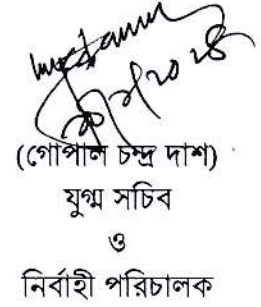 (গোপাল চন্দ্র দাশ)
যুগ্ম সচিব
ও
নির্বাহী পরিচালক